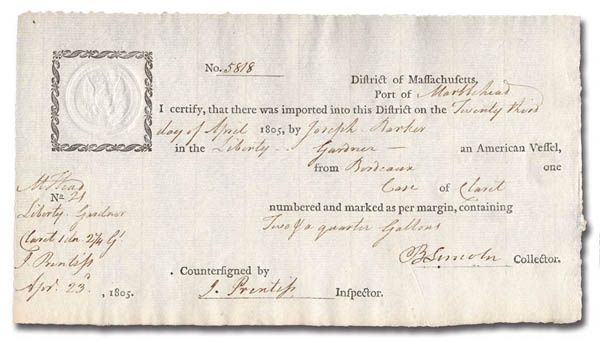 No. 5818
District of Massachusetts,
Port of Marblehead
I certify, that there was imported into this District on the Twenty third
day of April 1805, by Joseph Barker
in the Liberty - Gardner - an American Vessel,
from Bordeaux one
Case of Claret
numbered and marked as per margin, containing
Two & a quarter Gallons
B Lincoln Collector.
Countersigned by
J. Prentiss Inspector.
M. Head
No. 21
Liberty. Gardner
Claret 1 dn. 2 1/4 Gs
J Prentiss
Apr. 23d, 1805.